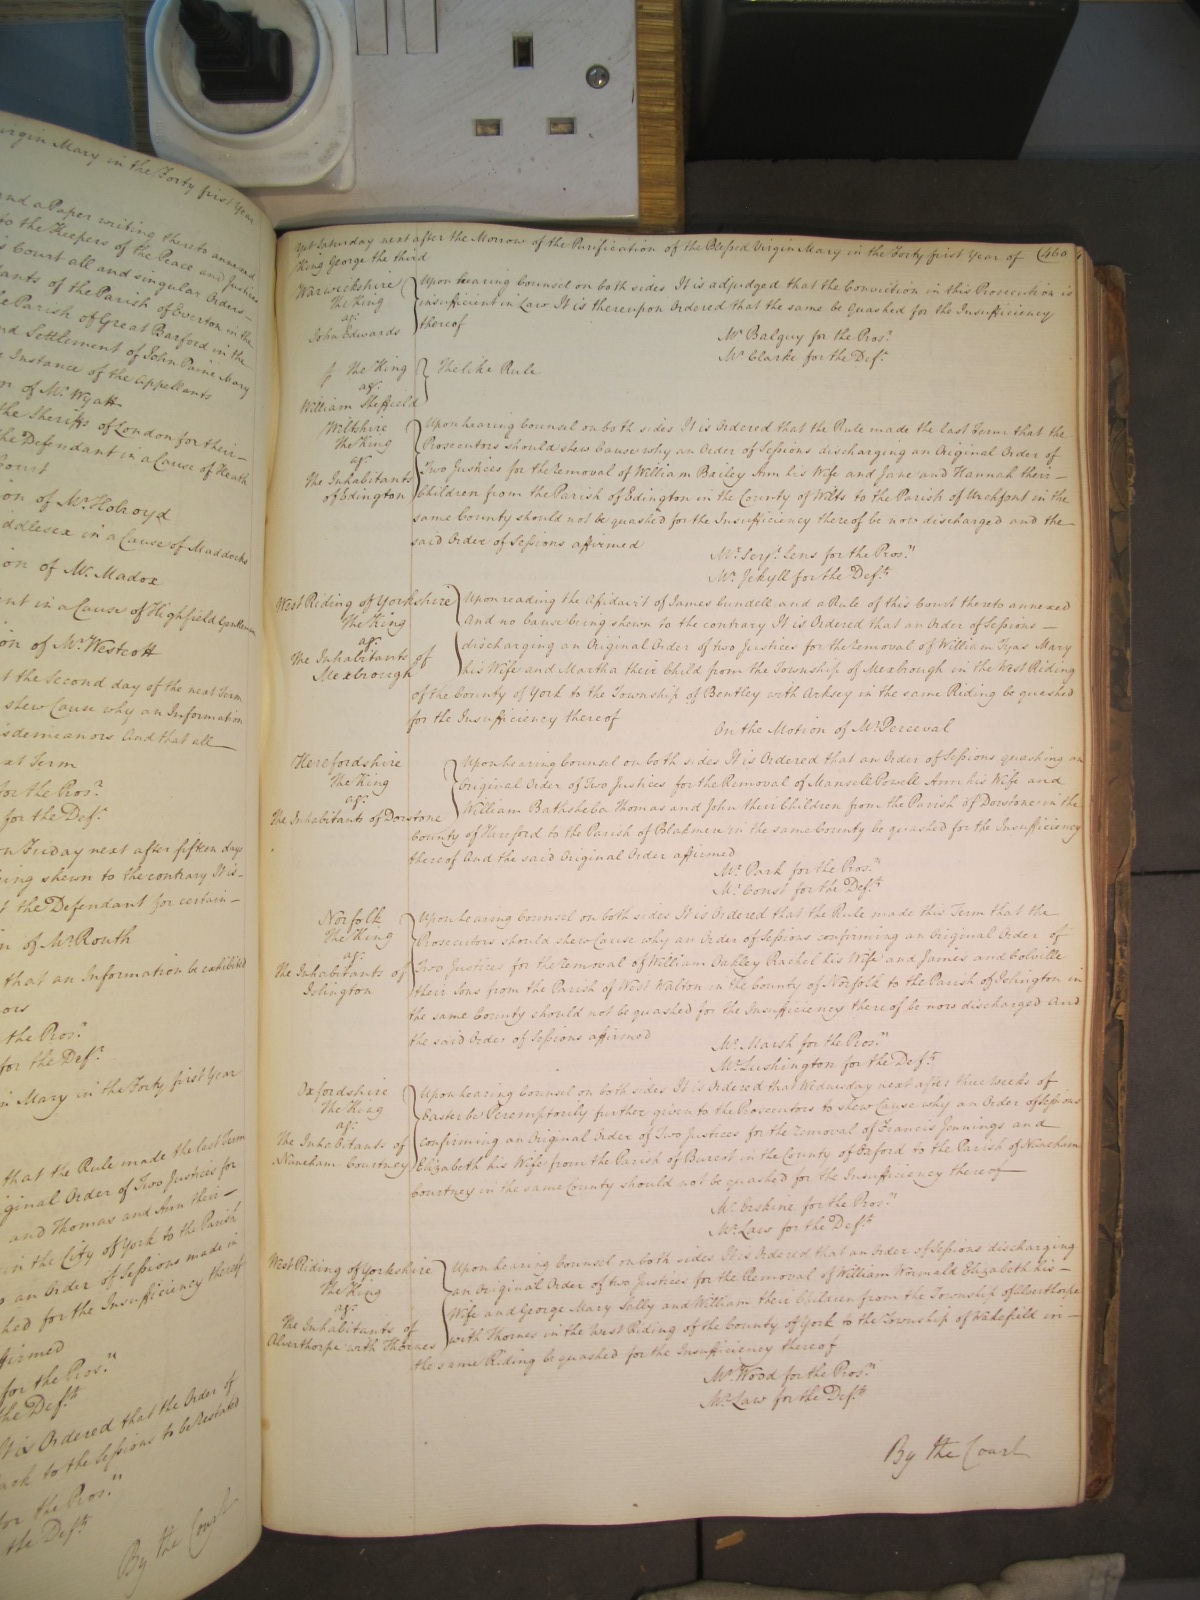 Virgin Mary in the Forty first Year
and a Paper writing thereto annexed
to the Keepers of the Peace and Justices
Court all and singular Orders
of the Parish of Everton in the
Parish of Great Barford in the
Settlement of John Paine Mary
Instance of the Appellants
of Mr. Wyatt
the Sheriffs of London for their
the Defendant in a Cause of Heath
Court
on of Mr. Holroyd
iddlesex in a Cause of Maddocks
on of Mr. Madox
ent in a Cause of Highfield Gentleman
on of Mr. Westcott
the Second day of the next Term
shew Cause why an Information
isdemeanors And that all
ext Term
for the Pros.r
for the Def.t
on Friday next after fifteen days
being shewn to the contrary It is
the Defendant for certain
n of Mr. Routh
that an Information be exhibited
ors
the Pros.rs
for the Def.t
Mary in the Forty first Year
that the Rule made the last Term
iginal Order of Two Justices for
and Thomas and Ann their
in the City of York to the Parish
an Order of Sessions made in
hed for the Insufficiency thereof
ffirmed
for the Pros.rs
the Def.ts
It is Ordered that the Order of
back to the Sessions to be Restated
for the Pros.rs
the Def.ts
By the Court
Yet Saturday next after the Morrow of the Purification of the Blessed Virgin Mary in the Forty first Year of (460
King George the third
Warwickshire
The King
agt.
John Edwards
Upon hearing Counsel on both sides It is adjudged that the Conviction in this Prosecution is
insufficient in Law It is thereupon Ordered that the same be Quashed for the Insufficiency
thereof
Mr. Balguy for the Pros.r
Mr. Clarke for the Def.t
The King
agt.
William Sheffield
The like Rule
Wiltshire
The King
agt.
The Inhabitants
of Edington
Upon hearing Counsel on both sides It is Ordered that the Rule made the last Term that the
Prosecutors should shew Cause why an Order of Sessions discharging an Original Order of
Two Justices for the Removal of William Bailey Ann his Wife and Jane and Hannah their
Children from the Parish of Edington in the County of Wilts to the Parish of Urchfont in the
same County should not be quashed for the Insufficiency thereof be now discharged and the
said Order of Sessions affirmed
Mr. Serj.t Lens for the Pros.rs
Mr. Jekyll for the Def.ts
West Riding of Yorkshire
The King
agt.
The Inhabitants of
Mexbrough
Upon reading the Affidavit of James Cundell and a Rule of this Court thereto annexed
and no Cause being shewn to the contrary It is Ordered that an Order of Sessions
discharging an Original Order of two Justices for the Removal of William Tyas Mary
his Wife and Martha their Child from the Township of Mexbrough in the West Riding
of the County of York to the Township of Bentley with Arksey in the same Riding be quashed
for the Insufficiency thereof
On the Motion of Mr. Perceval
Herefordshire
The King
agt.
The Inhabitants of Dorstone
Upon hearing Counsel on both sides It is Ordered that an Order of Sessions quashing an
Original Order of Two Justices for the Removal of Mansell Powell Ann his Wife and
William Bathsheba Thomas and John their Children from the Parish of Dorstone in the
County of Hereford to the Parish of Blakmere in the same County be quashed for the Insufficiency
thereof And the said Original Order affirmed
Mr. Park for the Pros.rs
Mr. Const for the Def.ts
Norfolk
The King
agt.
The Inhabitants of
Islington
Upon hearing Counsel on both sides It is Ordered that the Rule made this Term that the
Prosecutors should shew Cause why an Order of Sessions confirming an Original Order of
Two Justices for the Removal of William Oakley Rachel his Wife and James and Colville
their Sons from the Parish of West Walton in the County of Norfolk to the Parish of Islington in
the same County should not be quashed for the Insufficiency thereof be now discharged And
the said Order of Sessions affirmed
Mr. Marsh for the Pros.rs
Mr. Lushington for the Def.ts
Oxfordshire
The King
agt.
The Inhabitants of
Nuneham Courtney
Upon hearing Counsel on both sides It is Ordered that Wednesday next after three weeks of
Easter be Peremptorily further given to the Prosecutors to shew Cause why an Order of Sessions
confirming an Original Order of Two Justices for the Removal of Francis Jennings and
Elizabeth his Wife from the Parish of Burcot in the County of Oxford to the Parish of Nuneham
Courtney in the same County should not be quashed for the Insufficiency thereof
Mr. Erskine for the Pros.rs
Mr. Law for the Def.ts
West Riding of Yorkshire
The King
agt.
The Inhabitants of
Alverthorpe with Thornes
Upon hearing Counsel on both sides It is Ordered that an Order of Sessions discharging
an Original Order of two Justices for the Removal of William Wormald Elizabeth his
Wife and George Mary Sally and William their Children from the Township of Alverthorpe
with Thornes in the West Riding of the County of York to the Township of Wakefield in
the same Riding be quashed for the Insufficiency thereof
Mr. Wood for the Pros.rs
Mr. Law for the Def.ts
By the Court